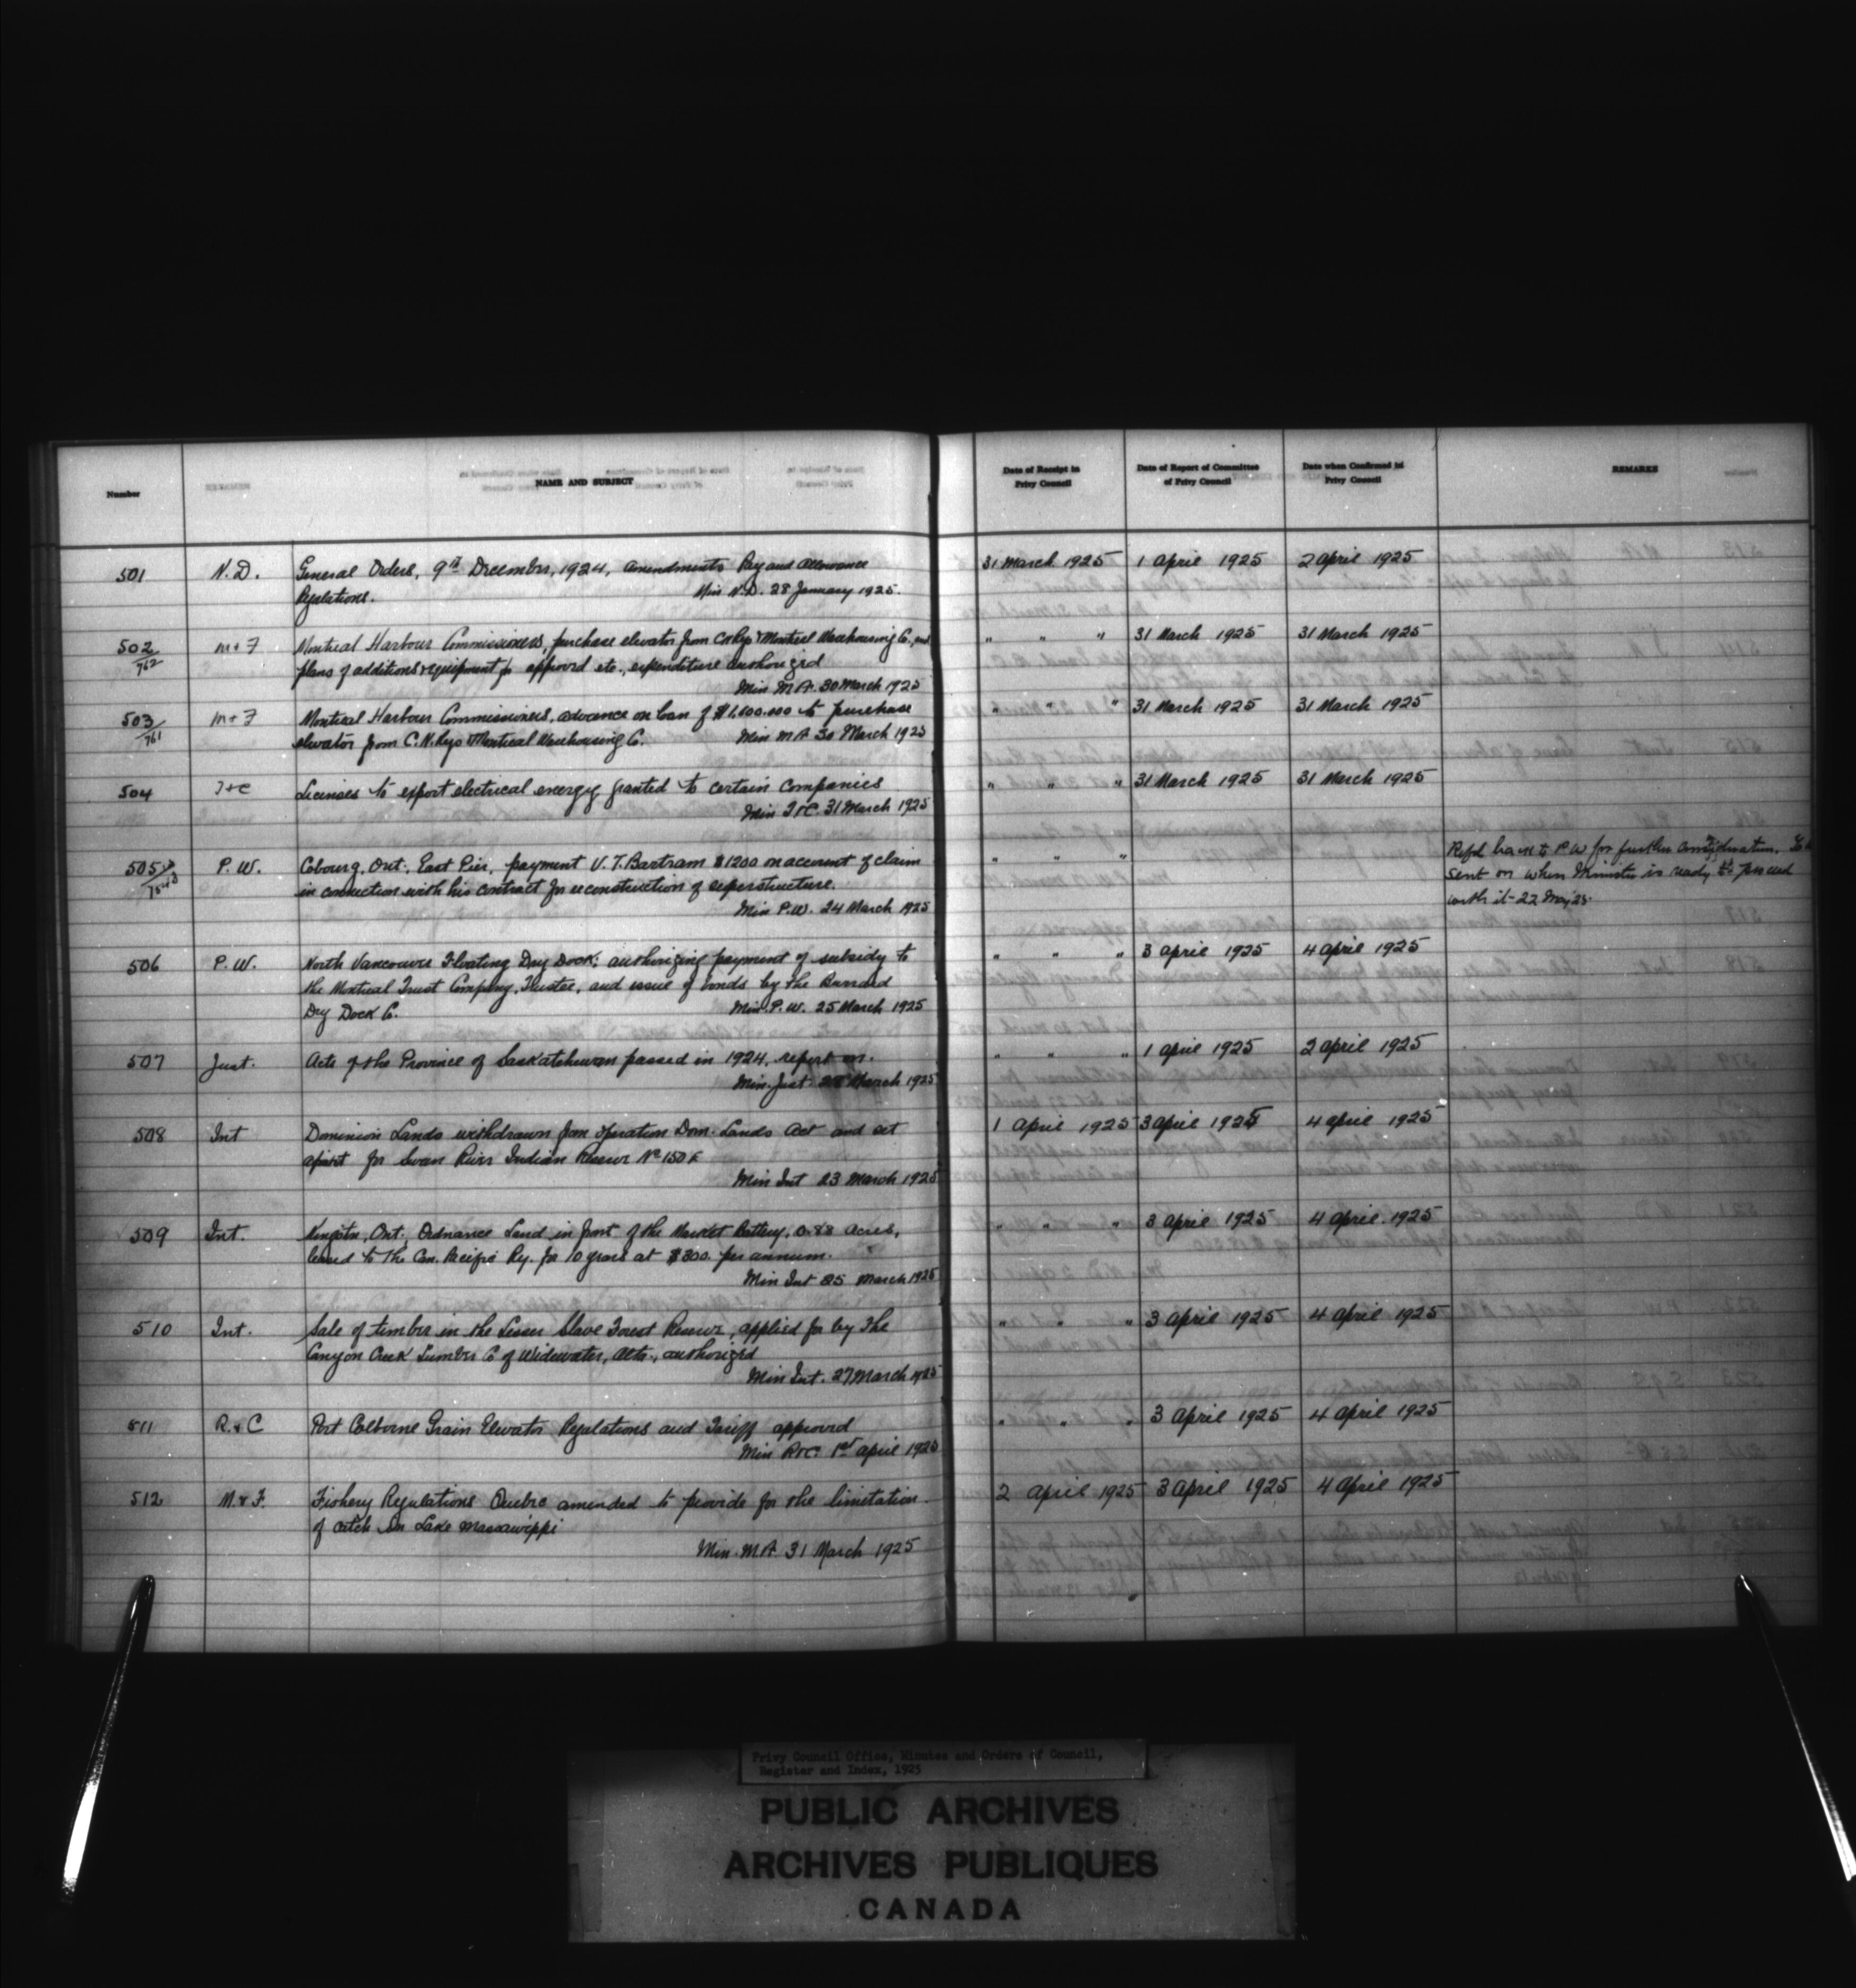 Number
NAME AND SUBJECT
Date of Receipt in Privy Council
Date of Report of Committee of Privy Council
Date when Confirmed in Privy Council
REMARKS
501 N.D. General Orders, 9th December, 1924, amendments Pay and Allowance 31 March 1925 1 April 1925 2 April 1925
Regulations. Min N.D. 28 January 1925.
502/762 M+F Montreal Harbour Commissioners, purchase elevator from C N Rys & Montreal Warehousing Co., and " " " 31 March 1925 31 March 1925
plans of additions & equipment for approved etc., expenditure authorized
Min M.A. 30 March 1925
503/761 M+F Montreal Harbour Commissioners, advance on loan of to purchase " " " 31 March 1925 31 March 1925
elevator from C.N. Rys & Montreal Warehousing Co. Min M A 30 March 1925
504 T+C Licenses to export electrical energy granted to certain companies " " " 31 March 1925 31 March 1925
Min T+C. 31 March 1925
505 P.W. Cobourg, Ont. East Pier, payment V.T. Bartram $1200 on account of claim " " " Refd back to P W for further consideration. To be
in connection with his contract for reconstruction of superstructure. sent on when Minister is ready to proceed
Min P.W. 24 March 1925 with it - 22 May 25.
506 P.W. North Vancouver Floating Dry Dock; authorizing payment of subsidy to " " " 3 April 1925 4 April 1925
the Montreal Trust Company, Trustee, and issue of bonds by the Burrard
Dry Dock Co. Min. P.W. 25 March 1925
507 Just. Acts of the Province of Saskatchewan passed in 1924, report on. " " " 1 April 1925 2 April 1925
Min. Just March 1925
508 Int Dominion Lands withdrawn from operation Dom. Lands Act and set 1 April 1925 3 April 1925 4 April 1925
apart for Swan River Indian Reserve No 150 E
Min Int 23 March 1925
509 Int. Kingston, Ont., Ordnance Land in front of the Market Battery, 0.88 acres, " " " 3 April 1925 4 April 1925
leased to the Can. Pacific Ry. for 10 years at $300. per annum.
Min Int 25 March 1925
510 Int. Sale of timber in the Lesser Slave Forest Reserve, applied for by the " " " 3 April 1925 4 April 1925
Canyon Creek Lumber Co of Widewater, Alta., authorized
Min Int. 27 March 1925
511 R.+C Port Colborne Grain Elevator Regulations and Tariff approved " " " 3 April 1925 4 April 1925
Min R+C. 1st April 1925
512 M.+F. Fishery Regulations Quebec amended to provide for the limitation 2 April 1925 3 April 1925 4 April 1925
of catch in Lake Massawippi
Min. M A 31 March 1925
Privy Council Office, Minutes and Orders of Council,
Register and Index, 1925
PUBLIC ARCHIVES
ARCHIVES PUBLIQUES
CANADA